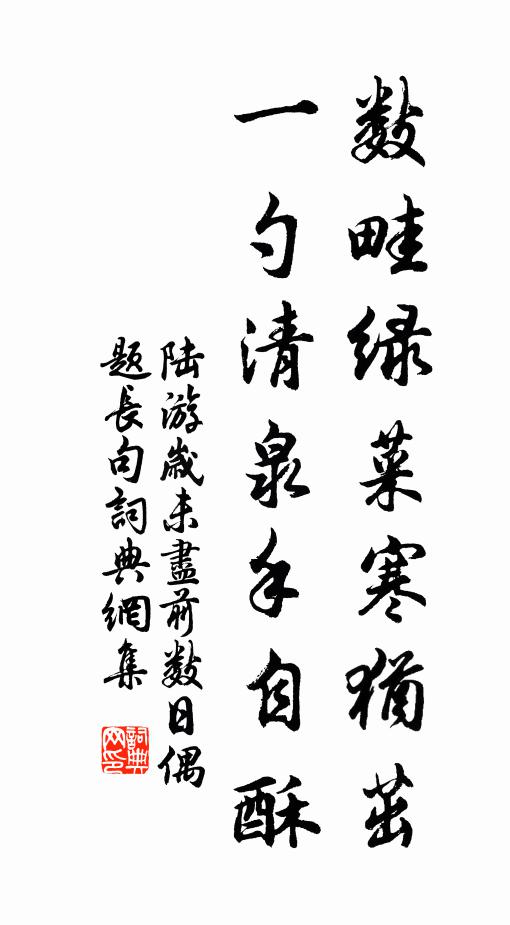 数畦绿菜寒犹茁
一勺清泉手自酥
陆游岁未尽前数日偶
题长句词典网集
词典网印